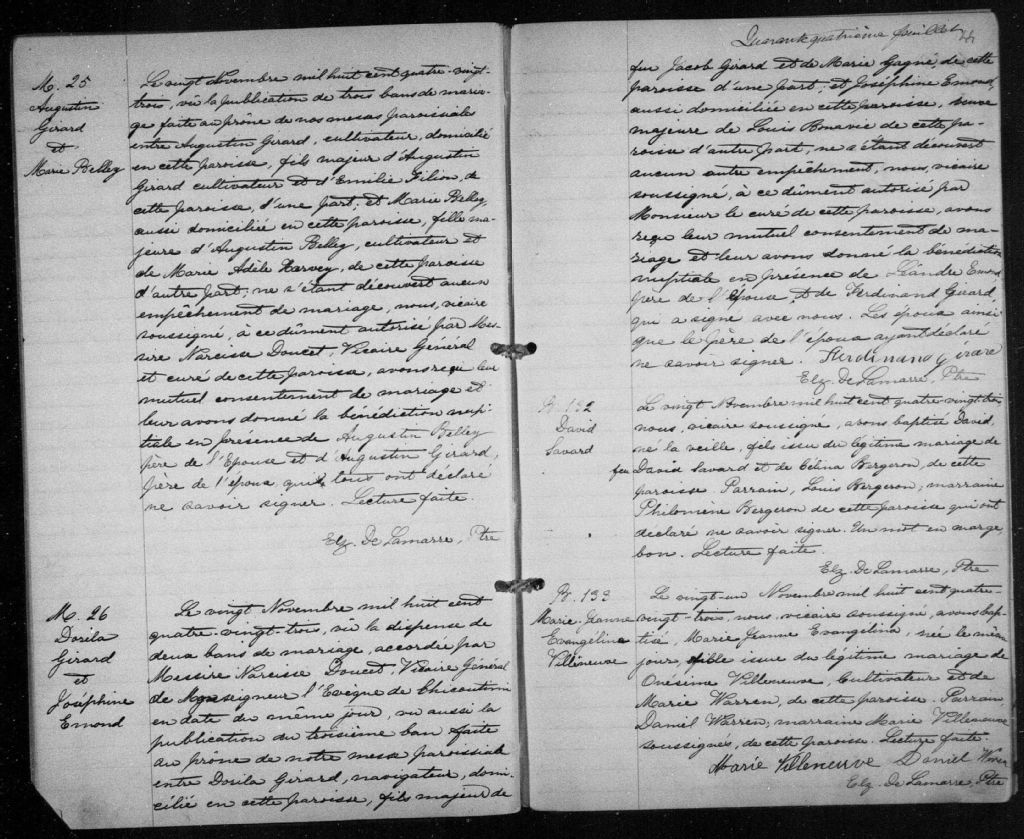 M. 25
Augustin
Girard
et
Marie Belley
Le vingt Novembre mil huit cent quatre-vingt-
trois, vu la publication de trois bans de maria-
ge faite au prône de nos messes paroissiales
entre Augustin Girard, cultivateur, domicilié
en cette paroisse, fils majeur d'Augustin
Girard cultivateur et d'Emilie Gilion, de
cette paroisse, d'une part; et Marie Belley,
aussi domiciliée en cette paroisse, fille ma-
jeure d'Augustin Belley, cultivateur et
de Marie Adèle Harvey, de cette paroisse
d'autre part; ne s'étant découvert aucun
empêchement de mariage, nous, vicaire
soussigné, à ce dûment autorisé par Mes-
sire Narcisse Doucet, Vicaire Général
et curé de cette paroisse, avons reçu leur
mutuel consentement de mariage et
leur avons donné la bénédiction nup-
tiale en présence de Augustin Belley
père de l'Epouse et d'Augustin Girard,
père de l'époux, qui tous ont déclaré
ne savoir signer. Lecture faite.
Elz. DeLamarre, Ptre
M. 26
Dosila
Girard
et
Joséphine
Emond
Le vingt Novembre mil huit cent
quatre-vingt-trois, vu la dispense de
deux bans de mariage, accordée par
Messire Narcisse Doucet, Vicaire Général
de Monseigneur l'Evêque de Chicoutimi
en date du même jour, vu aussi la
publication du troisième ban faite
au prône de notre messe paroissiale
entre Dosila Girard, navigateur, domi-
cilié en cette paroisse, fils majeur de
Quarante quatrième feuillet 44
feu Jacob Girard et de Marie Gagné, de cette
paroisse d'une part; et Joséphine Emond,
aussi domiciliée en cette paroisse, veuve
majeure de Louis Bonavie de cette pa-
roisse d'autre part, ne s'étant découvert
aucun autre empêchement, nous, vicaire
soussigné, à ce dûment autorisé par
Monsieur le curé de cette paroisse, avons
reçu leur mutuel consentement de ma-
riage et leur avons donné la bénédiction
nuptiale en présence de Léandre Emond
père de l'épouse et de Ferdinand Girard
qui a signé avec nous. Les époux ainsi
que le père de l'époux ayant déclaré
ne savoir signer. Ferdinand Girard
Elz. DeLamarre, Ptre
B. 132
David
Savard
Le vingt Novembre mil huit cent quatre-vingt-trois
nous, vicaire soussigné, avons baptisé David,
né la veille, fils issu du légitime mariage de
feu David Savard et de Célina Bergeron, de cette
paroisse. Parrain, Louis Bergeron; marraine
Philomène Bergeron de cette paroisse qui ont
déclaré ne savoir signer. Un mot en marge
bon. Lecture faite.
Elz. DeLamarre, Ptre
B. 133
Marie-Jeanne
Evangélina
Villeneuve
Le vingt-un Novembre mil huit cent quatre-
vingt-trois, nous, vicaire soussigné, avons bap-
tisé, Marie Jeanne Evangélina, née le même
jour, fille issue du légitime mariage de
Onésime Villeneuve, Cultivateur et de
Marie Warren, de cette paroisse. Parrain,
Daniel Warren, marraine Marie Villeneuve
soussignés, de cette paroisse. Lecture faite.
Marie Villeneuve Daniel
Elz. DeLamarre, Ptre